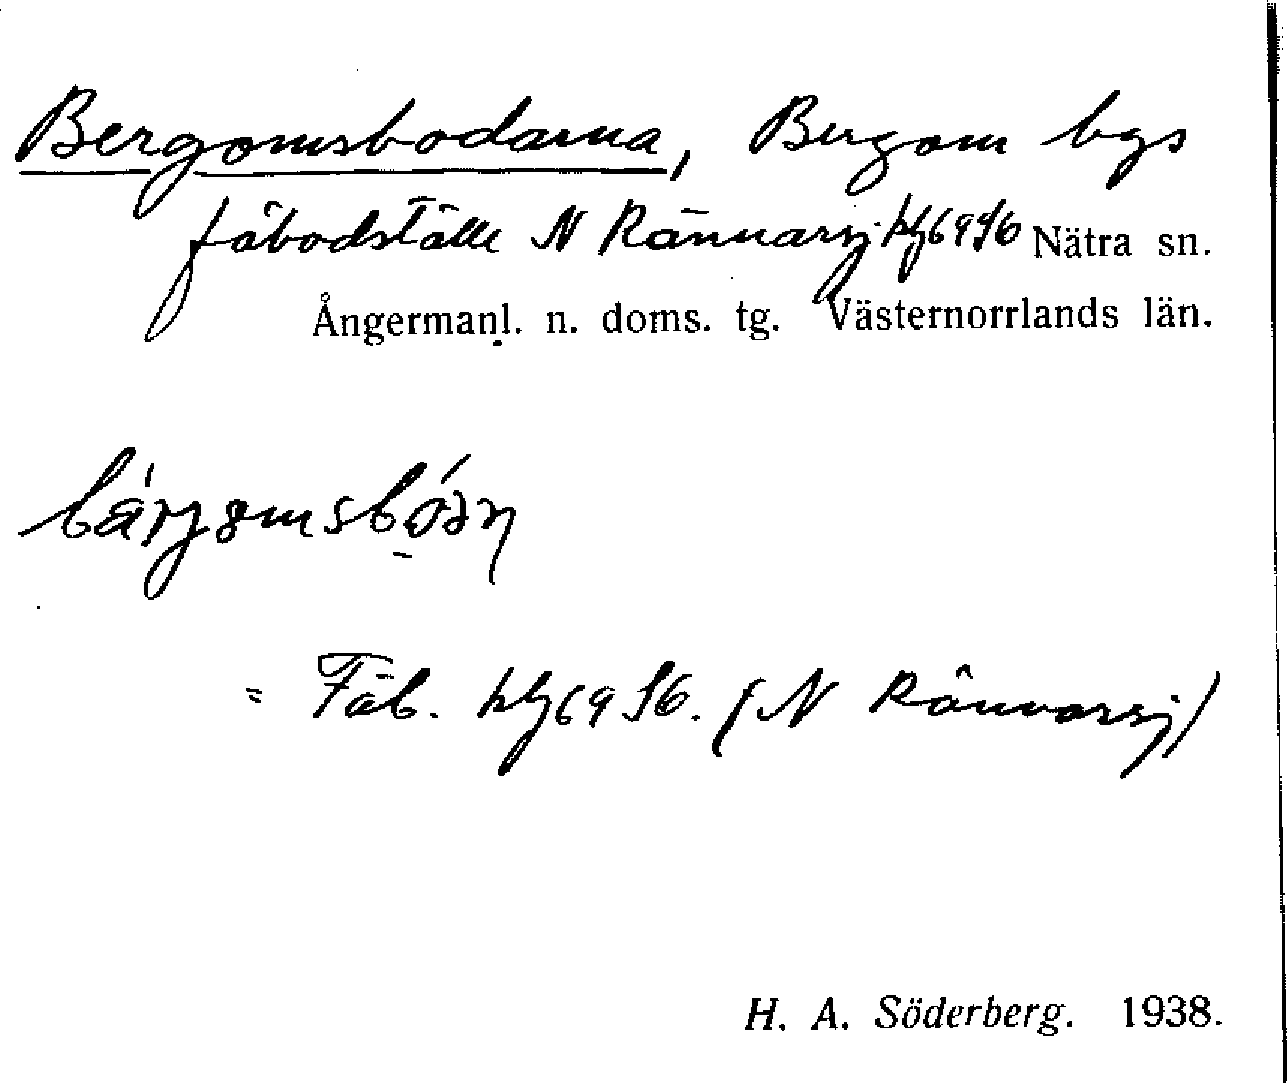 Bergomsbodarna, Bergom bys
fäbodställe N Rännarsj. hfj6956 Nätra sn.
Ångermanl. n. doms. tg. Västernorrlands län.
= Fäb. hfj6956. (N Rännarsj)
H. A. Söderberg. 1938.